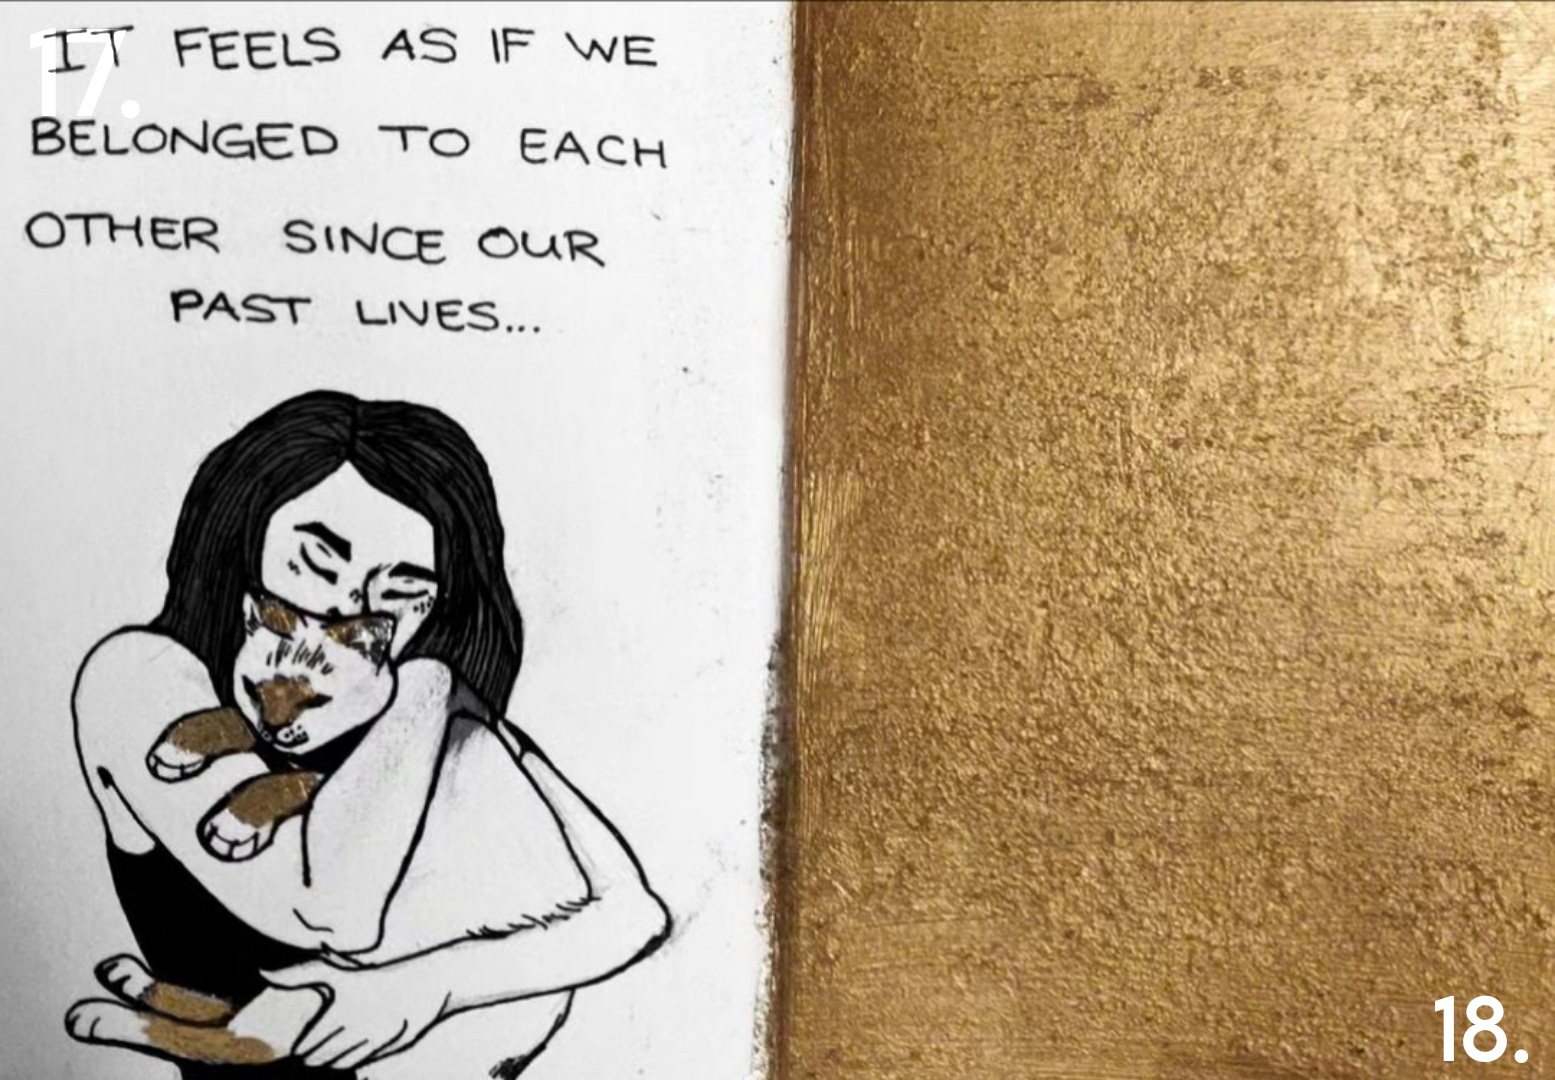 17.
IT FEELS AS IF WE
BELONGED TO EACH
OTHER SINCE OUR
PAST LIVES...
18.